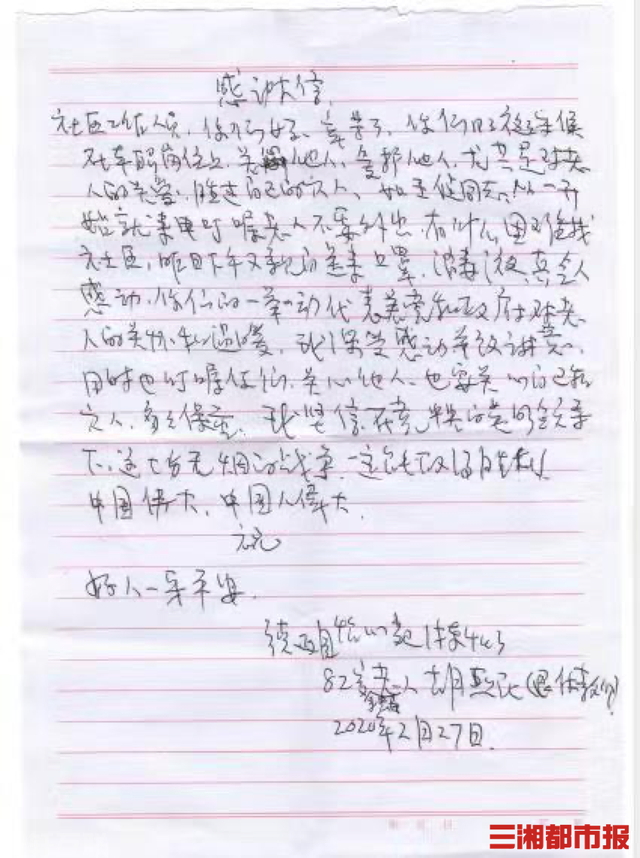 感谢信
社区工作人员，你们好，辛苦了，你们时这时候
还在车服岗位上，关照他人，宽邦他人，尤其是对老
人的关爱，胜过自己的家人，如王健同志，从一开
始就来电叮嘱老人不要外出，有什么困难找
社区，昨日下午又亲自送来口罩，消毒液，真令人
感动，你们的一举一动代表着党和政府对老
人的关怀和温暖，我深受感动并致谢意，
同时也叮嘱你们，关心他人，也要关心自己和
家人，多多保重，我坚信，在党中央的英明领导
下，这一场无烟的战争，一定能取得胜利
中国伟大，中国人伟大
祝
好人一身平安，
82岁老人 胡 (退休教师)
2020年2月27日
三湘都市报